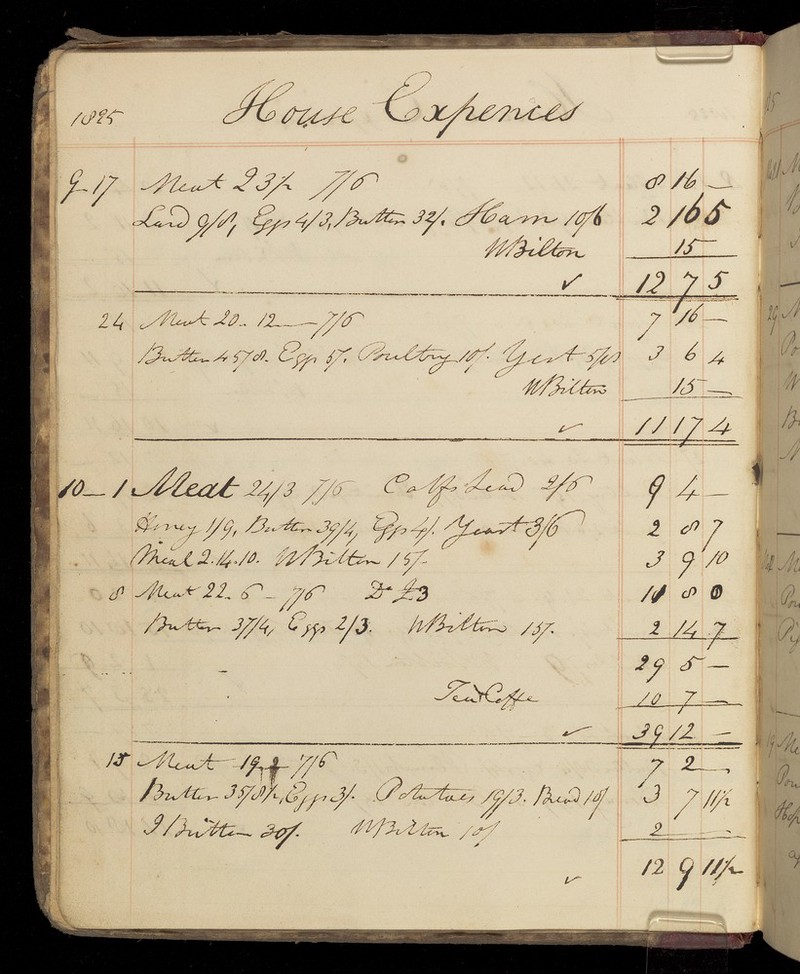 1825 House Expences
9-17 Meat 23½ 7/6 8 16 —
Lard 9/8, Eggs 4/3, Butter 32/. Ham 10/6 2 16 5
W Bilton 15
✓ 12 7 5
24 Meat 20. 12 — 7/6 7 16 —
Butter 45/8. Eggs 5/. Poultry 10/. Yest 5/8 3 6 4
W Bilton 15 —
✓ 11 17 4
10-1 Meat 24/3 7/6 Calfs head 2/6 9 4 —
Honey 1/9, Butter 39/4, Eggs 4/. Yeast 3/6 2 8 7
Meal 2.14.10. W Bilton 15/- 3 9 10
8 Meat 22. 6 - 7/6 Do £3 11 8 0
Butter 37/4, Eggs 2/3. W Bilton 15/. 2 14 7
29 5 —
Tea & Coffe 10 7 —
✓ 39 12 —
15 Meat 19 7/6 7 2 —
Butter 35/8½, Eggs 3/. Potatoes 19/3. Bread 10/ 3 7 11½
J Britten 30/. W Bilton 10/ 2 —
✓ 12 9 11½